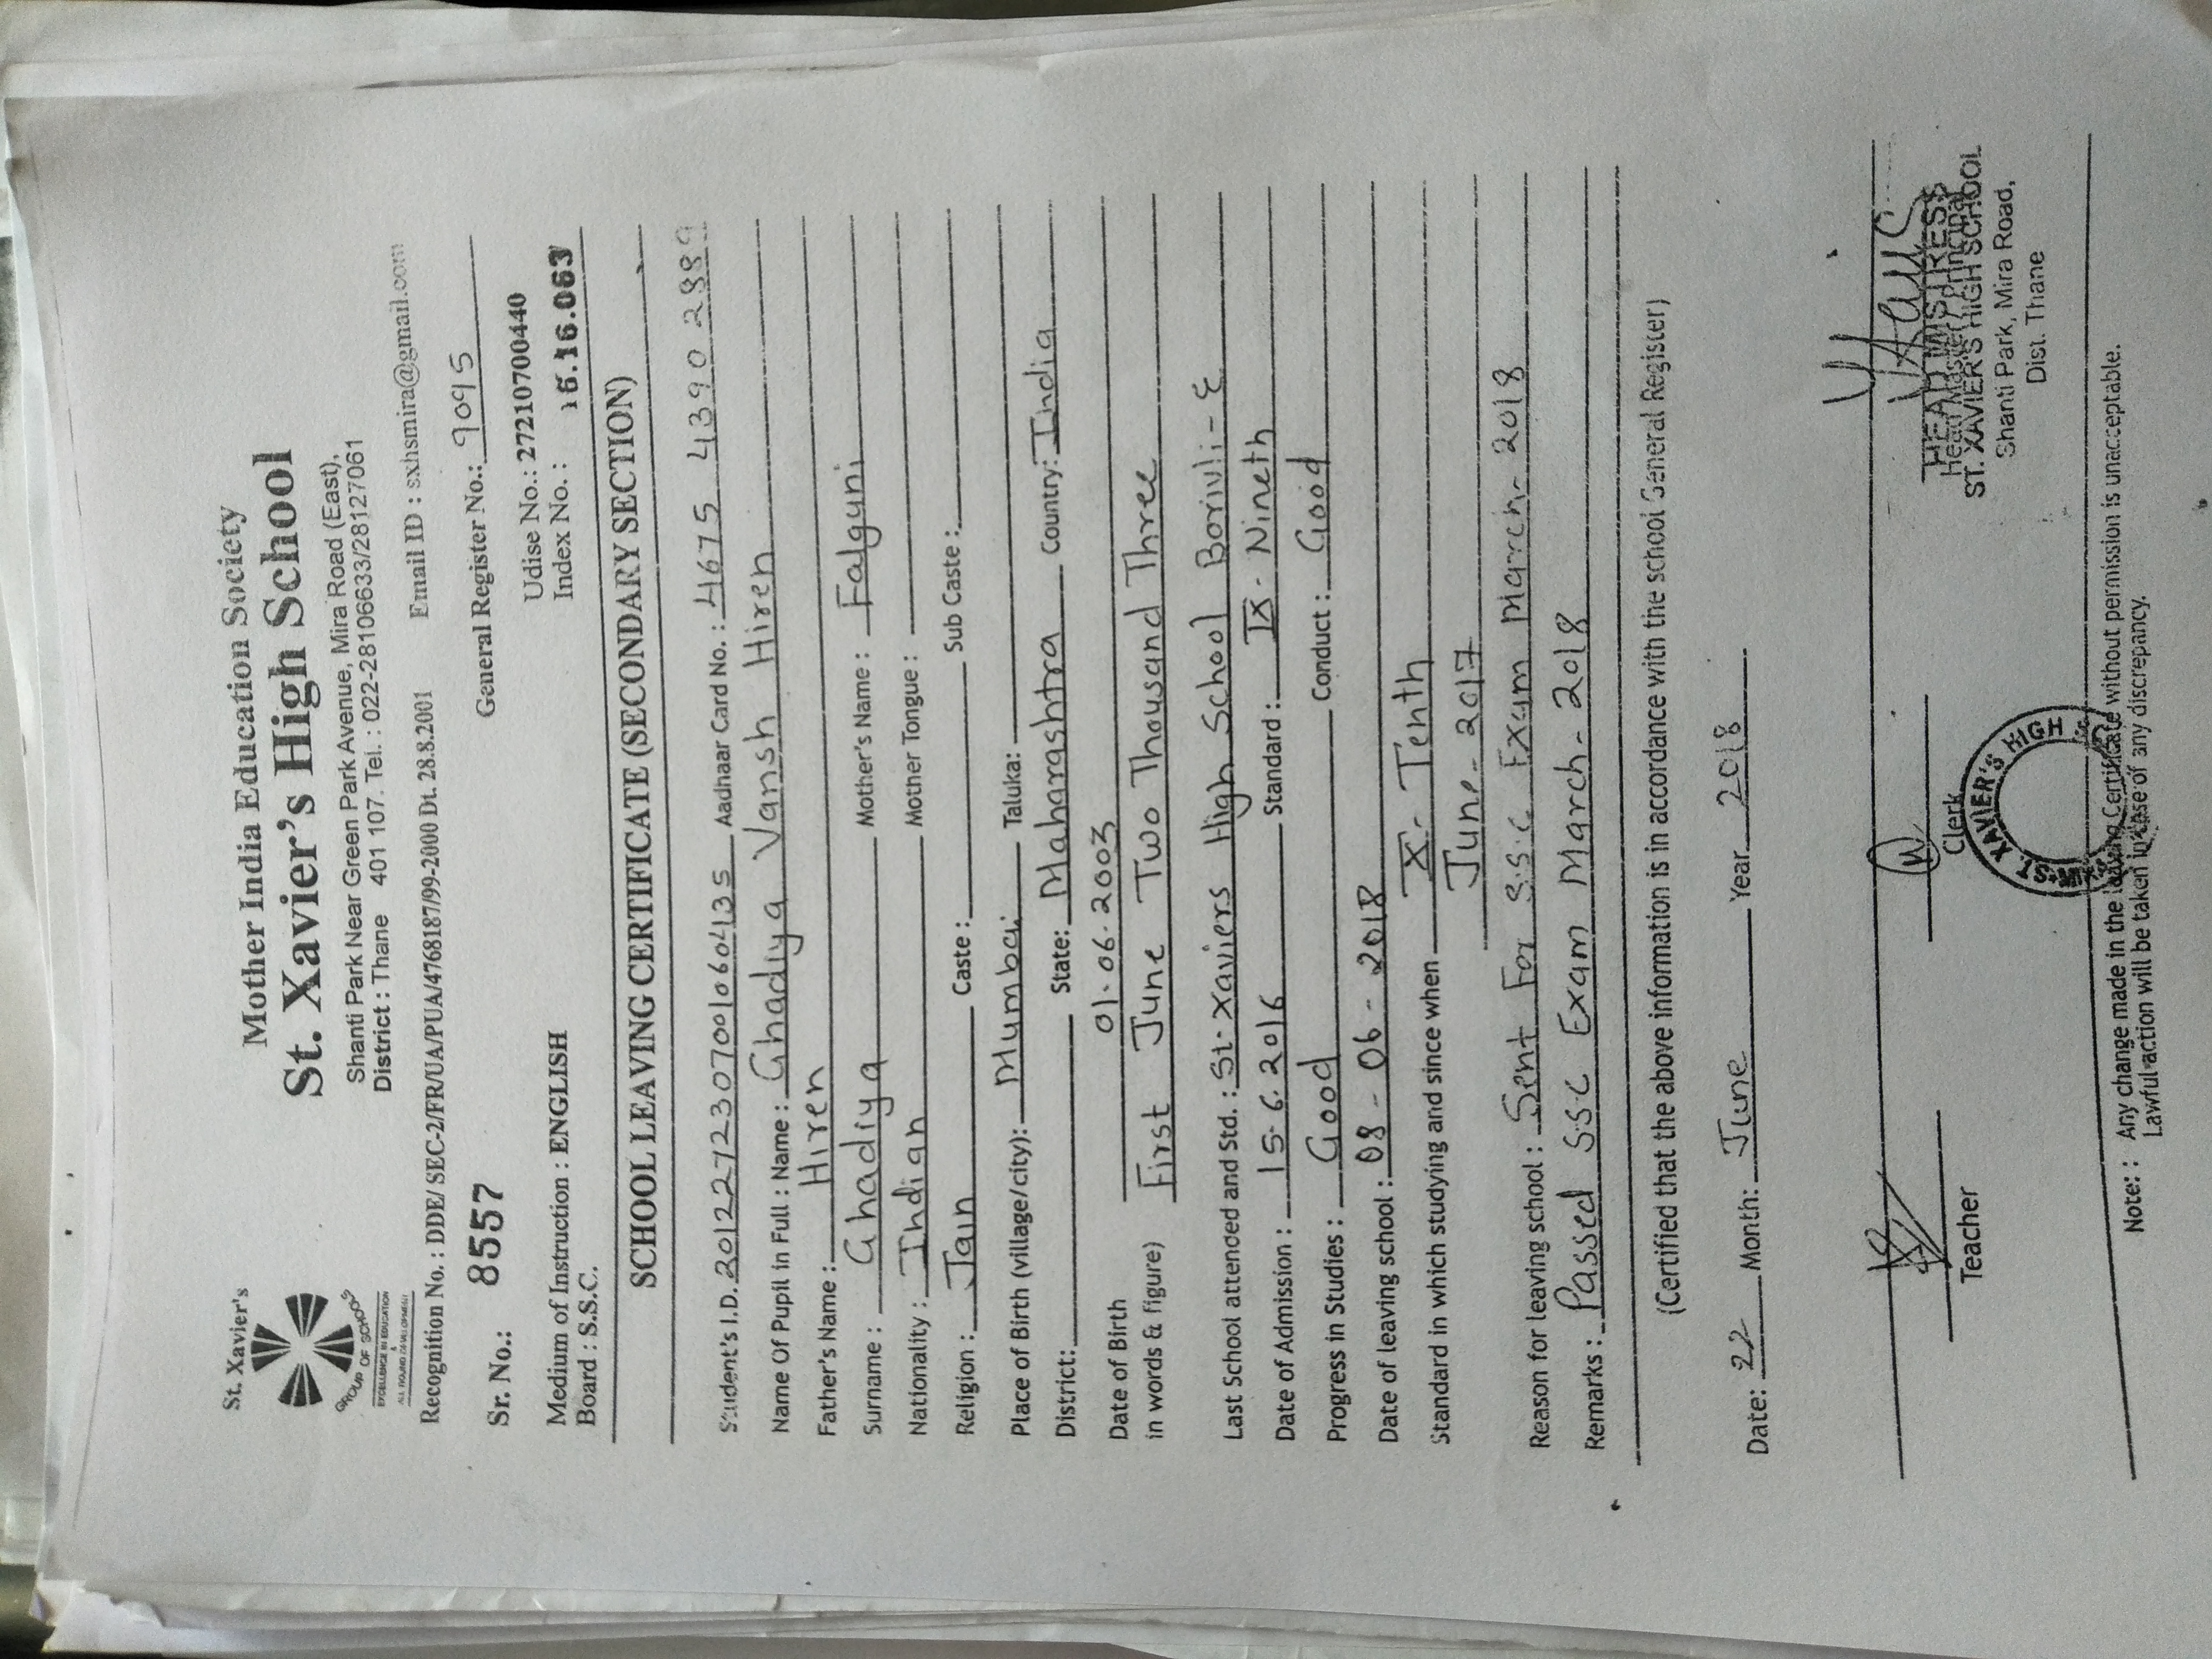 St. Xavier's
GROUP OF SCHOOLS
EXCELLENCE IN EDUCATION
&
ALL ROUND DEVELOPMENT
Mother India Education Society
St. Xavier's High School
Shanti Park Near Green Park Avenue, Mira Road (East),
District : Thane 401 107. Tel. : 022-28106633/28127061
Recognition No. : DDE/ SEC-2/FR/UA/PUA/4768187/99-2000 Dt. 28.8.2001 Email ID : sxhsmira@gmail.com
Sr. No.: 8557 General Register No.: 9045
Udise No.: 27210700440
Medium of Instruction : ENGLISH Index No. : 16.16.063
Board : S.S.C.
SCHOOL LEAVING CERTIFICATE (SECONDARY SECTION)
Student's I.D. 2012272307001060413S Aadhaar Card No. : 4675 4390 2889
Name Of Pupil in Full : Name : Ghadiya Vansh Hiren
Father's Name : Hiren
Surname : Ghadiya Mother's Name : Falguni
Nationality : Indian Mother Tongue :
Religion : Jain Caste : Sub Caste :
Place of Birth (village/city): Mumbai Taluka:
District: State: Maharashtra Country: India
Date of Birth 01.06.2003
in words & figure) First June Two Thousand Three
Last School attended and Std. : St. Xaviers High School Borivli-E
Date of Admission : 15.6.2016 Standard : IX - Nineth
Progress in Studies : Good Conduct : Good
Date of leaving school : 08 - 06 - 2018
Standard in which studying and since when X - Tenth
June - 2017
Reason for leaving school : Sent For S.S.C Exam March - 2018
Remarks : Passed S.S.C Exam March - 2018
(Certified that the above information is in accordance with the school General Register)
Date: 22 Month: June Year 2018
Teacher
Clerk
HEADMISTRESS
Head Master / Principal
ST. XAVIER'S HIGH SCHOOL
Shanti Park, Mira Road,
Dist. Thane
ST. XAVIER'S HIGH
Note: : Any change made in the leaving Certificate without permission is unacceptable.
Lawful action will be taken in case of any discrepancy.